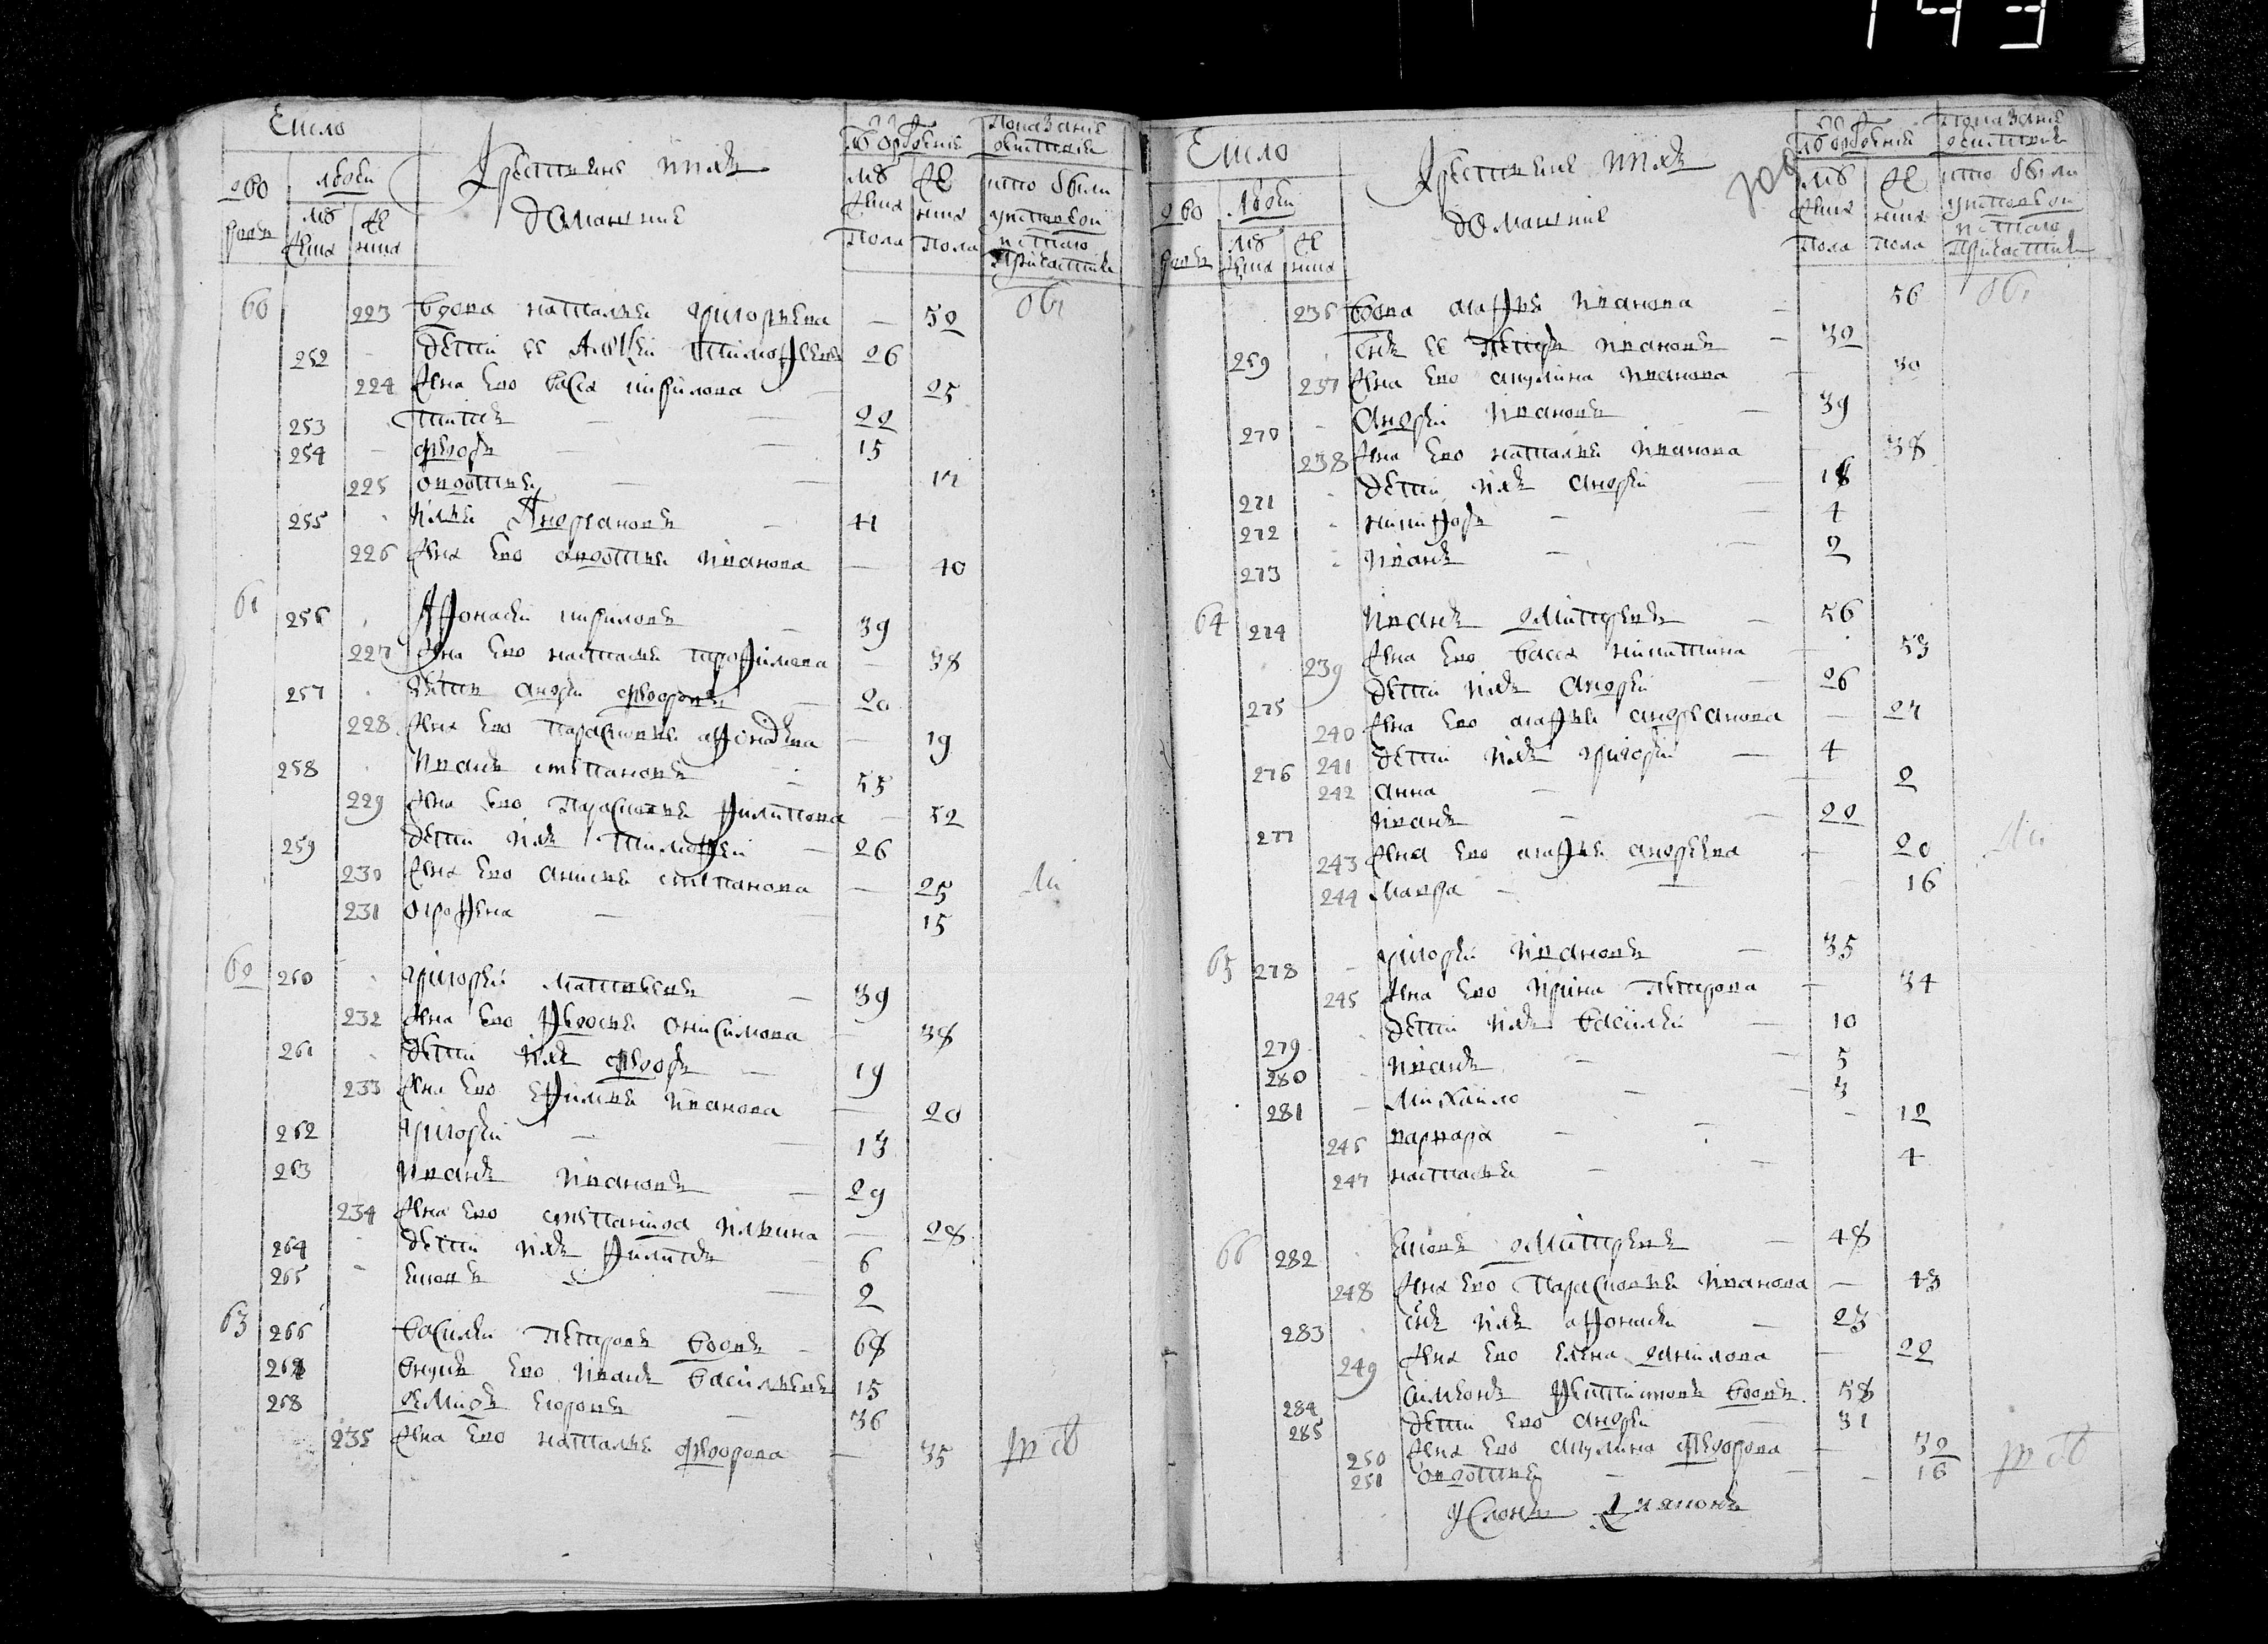 149
Число
Крестьяне и ихъ
домашние
Показание
дво
людей
му
же
что были
ска
ска
пола
пола
60
223 вдова наталья григорьева — 52
252 дети ее Алѣксѣй тимофеевъ 26
224 жена ево васса кирилова 25
253 титъ 22
254 федоръ 15
225 овдотья 17
255 илья Андреановъ 41
226 жена ево авдотья иванова — 40
61
256 Афонасей кириловъ 39
227 жена ево наталья трофимова — 38
257 зять андрей федоровъ 20
228 жена ево парасковья афонасева — 19
258 иванъ степановъ 55
229 жена ево парасковья филипова — 52
259 дети ихъ тимофей 26
230 жена ево анисья степанова — 25
231 огрофена 15
62 260 григорей матвѣевъ 39
232 жена ево федосья онисимова 38
261 дети ихъ федоръ 19
233 жена ево ефимья иванова — 20
262 григорей 13
263 иванъ ивановъ 29
234 жена ево степанида ильина — 28
264 дети ихъ филипъ 6
265 2
63 266 василей петровъ вдовъ 68
267 внукъ ево иванъ васильевъ 15
268 демидъ егоровъ 36
235 жена ево наталья федорова — 35
Число
Крестьяне и ихъ
домашние
Показание
дво
людей
му
же
что были
пола
пола
236 вдова агафья иванова 56
259 сынъ ее петръ ивановъ 32
237 жена ево акулина иванова 30
270 Андрей ивановъ 39
238 жена ево наталья иванова 38
271 дети ихъ андрей 18
272 никифоръ 4
273 иванъ 2
64 274 иванъ дмитреевъ 56
239 жена ево васса никитина 53
275 дети ихъ андрей 26
240 жена ево агафья андреанова — 27
276 241 дети ихъ григорей 4
242 анна 2
277 иванъ 20
243 жена ево агафья андреева 20
244 мавра 16
65 278 григорей ивановъ 35
245 жена ево ирина петрова 34
279 дети ихъ василей 10
280 иванъ 5
281 михаило 3
246 варвара 12
247 наталья 4
66 282 дмитреевъ 48
248 жена ево парасковья иванова — 43
283 сынъ ихъ афонасей 23
249 жена ево елена данилова 22
284 симеонъ вдовъ 58
285 дети ево андрей 31
250 жена ево акулина федорова — 32
251 овдотья 16